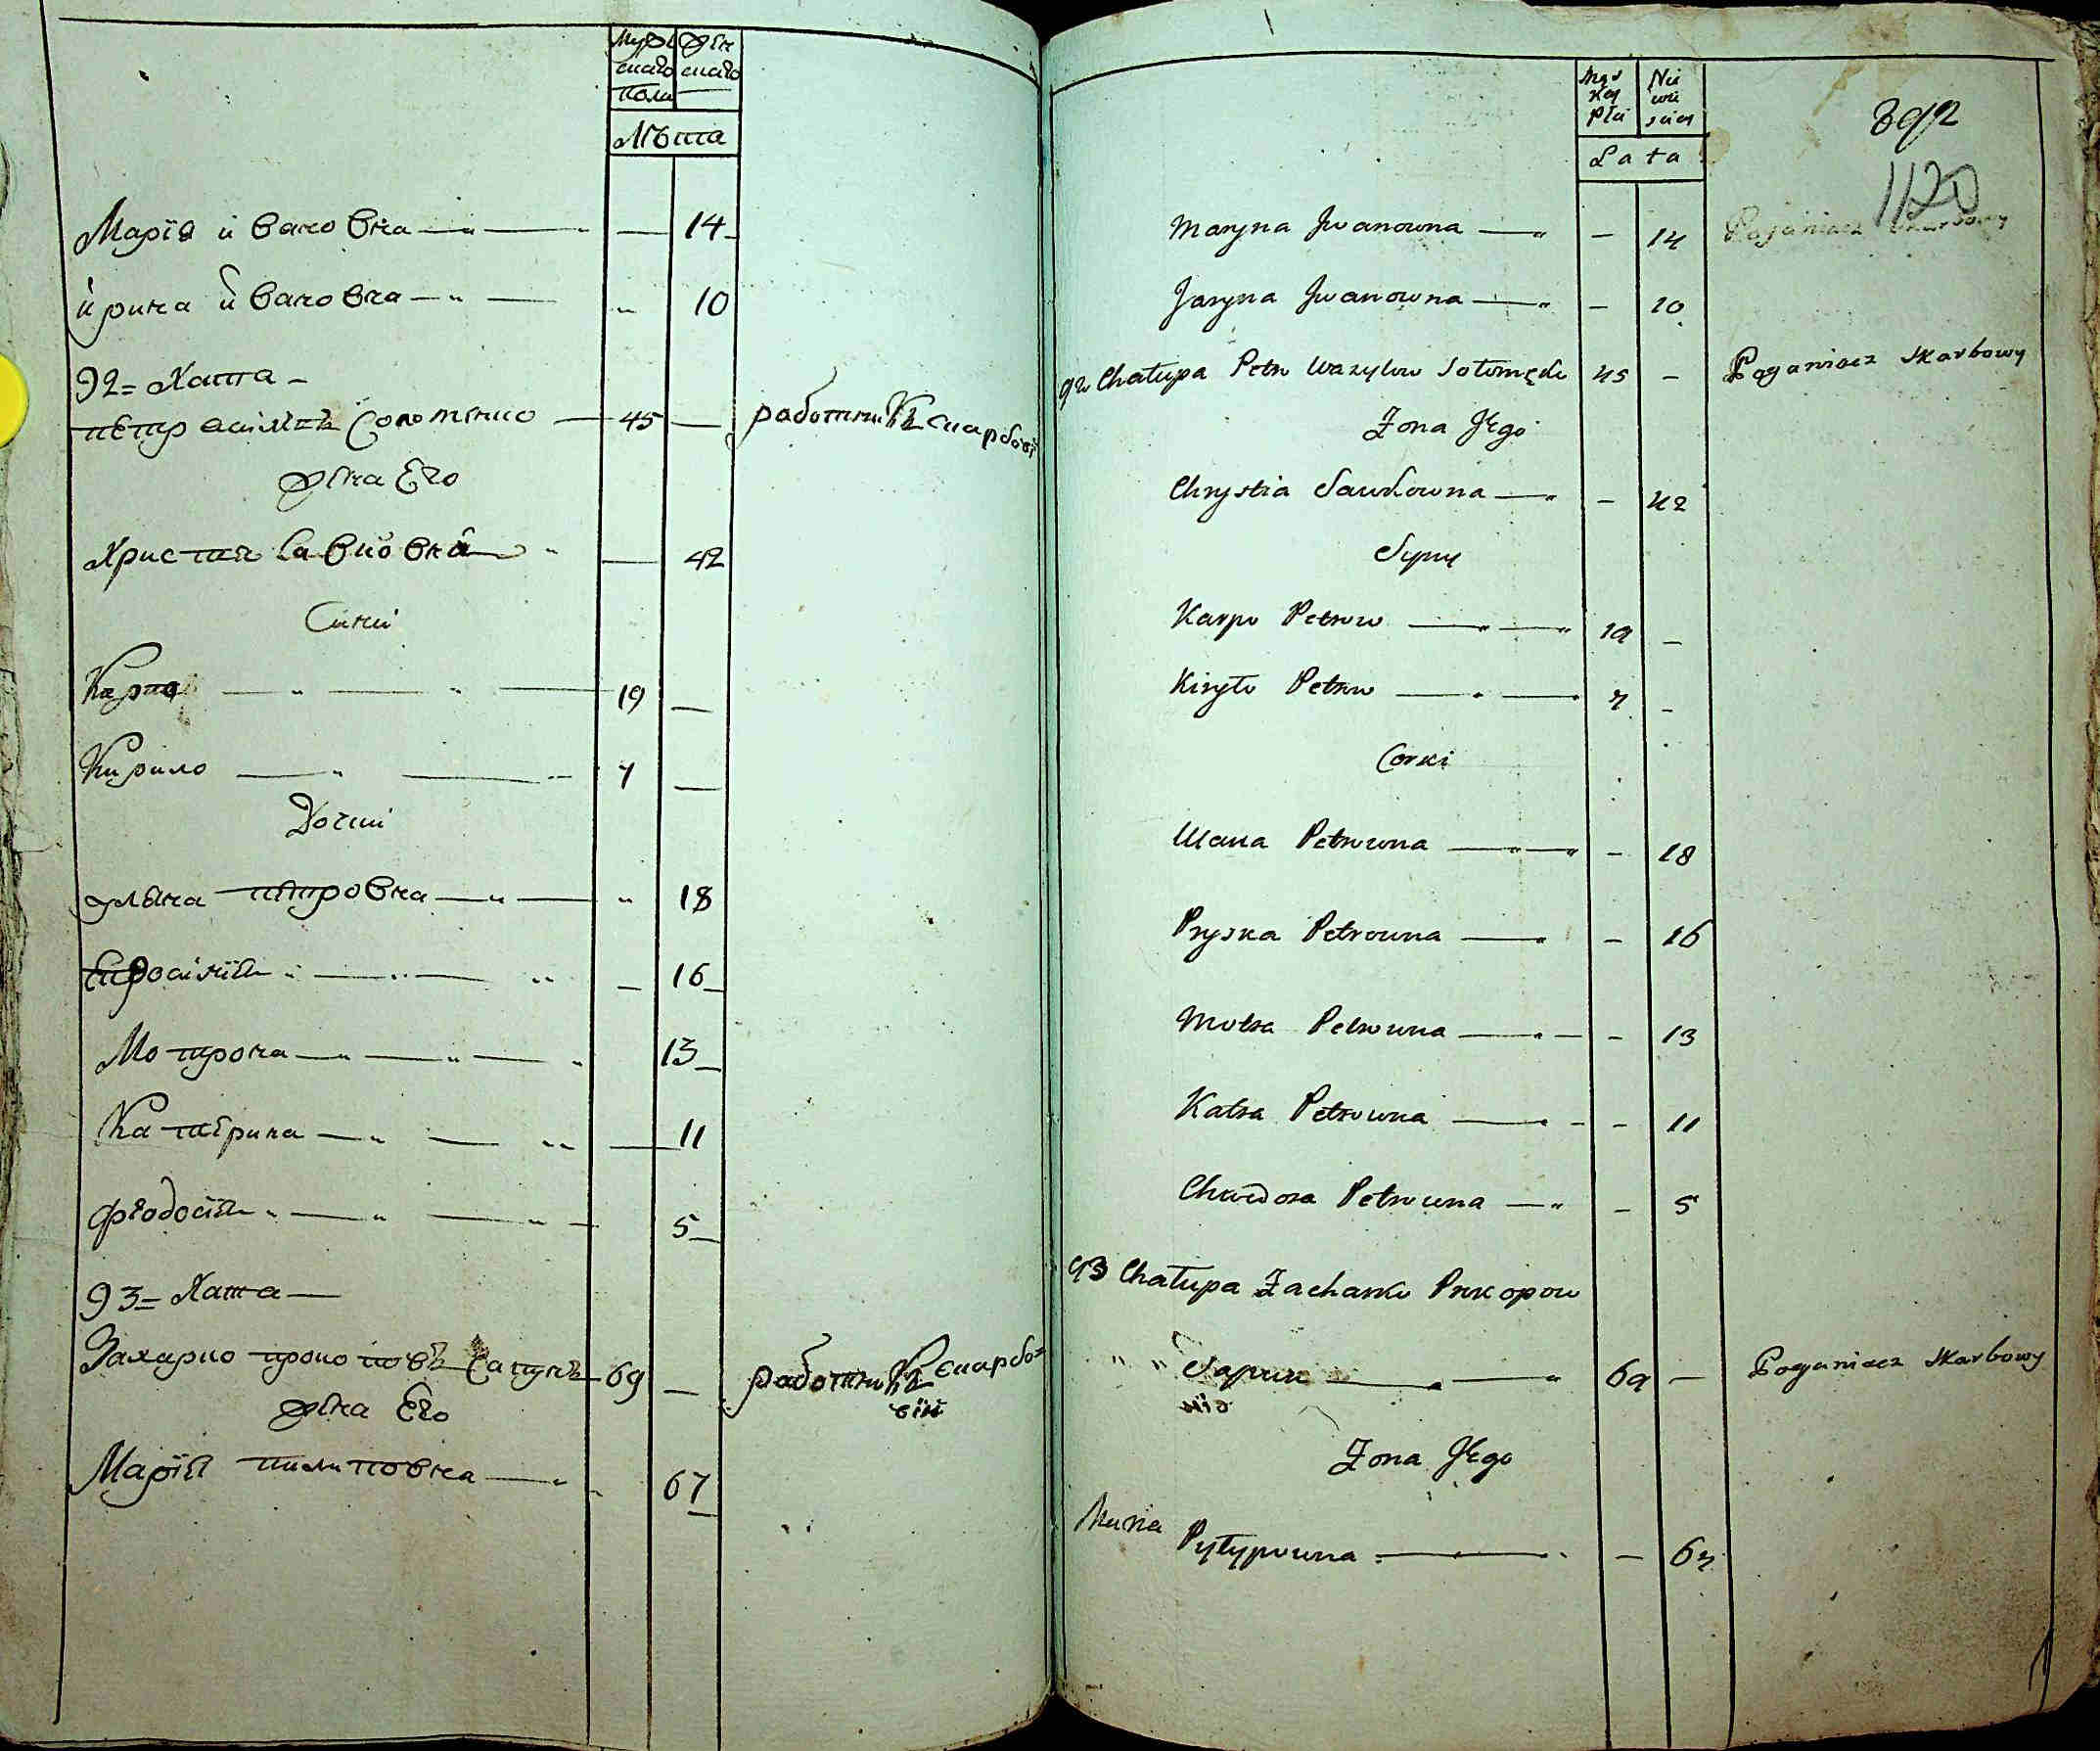 Муже
ска҃го
пола
Жен
ска҃го
Лѣта
Марія Ивановна 14
Ирина Ивановна 10
92 = Хата
Петр Соломенко 45 работникъ скарбовій
Жена Его
Христия Савковна 42
Сини
Карпо 19
Кирило 7
Дочки
Уляна Петровна 18
16
Мотрона 13
Катерина 11
Феодосія 5
93 = Хата
Захарко Прокоповъ Сапунъ 69 работникъ скарбо-
вій
Жена Его
Марія Пилиповна 67
Męs
key
Płci
Nie
wie
sciey
Lata
892
1120
Maryna Iwanowna — 14 Poganiacz Skarbowy
Jaryna Iwanowna — 10
92 Chałupa Petro Wazylow Sołomęko 45 — Poganiacz Skarbowy
Zona Jego
Chrystia Sawkowna — 42
Syny
Karpo Petrow 19 —
Kiryło Petrow 7 —
Corki
Ulana Petrowna — 18
Pryska Petrowna — 16
Motra Petrowna — 13
Katra Petrowna — 11
Chwedora Petrowna — 5
93 Chałupa Zacharko Prokopow
" " Sapun 69 — Poganiacz Skarbowy
Zona Jego
Pyłypowna — 67